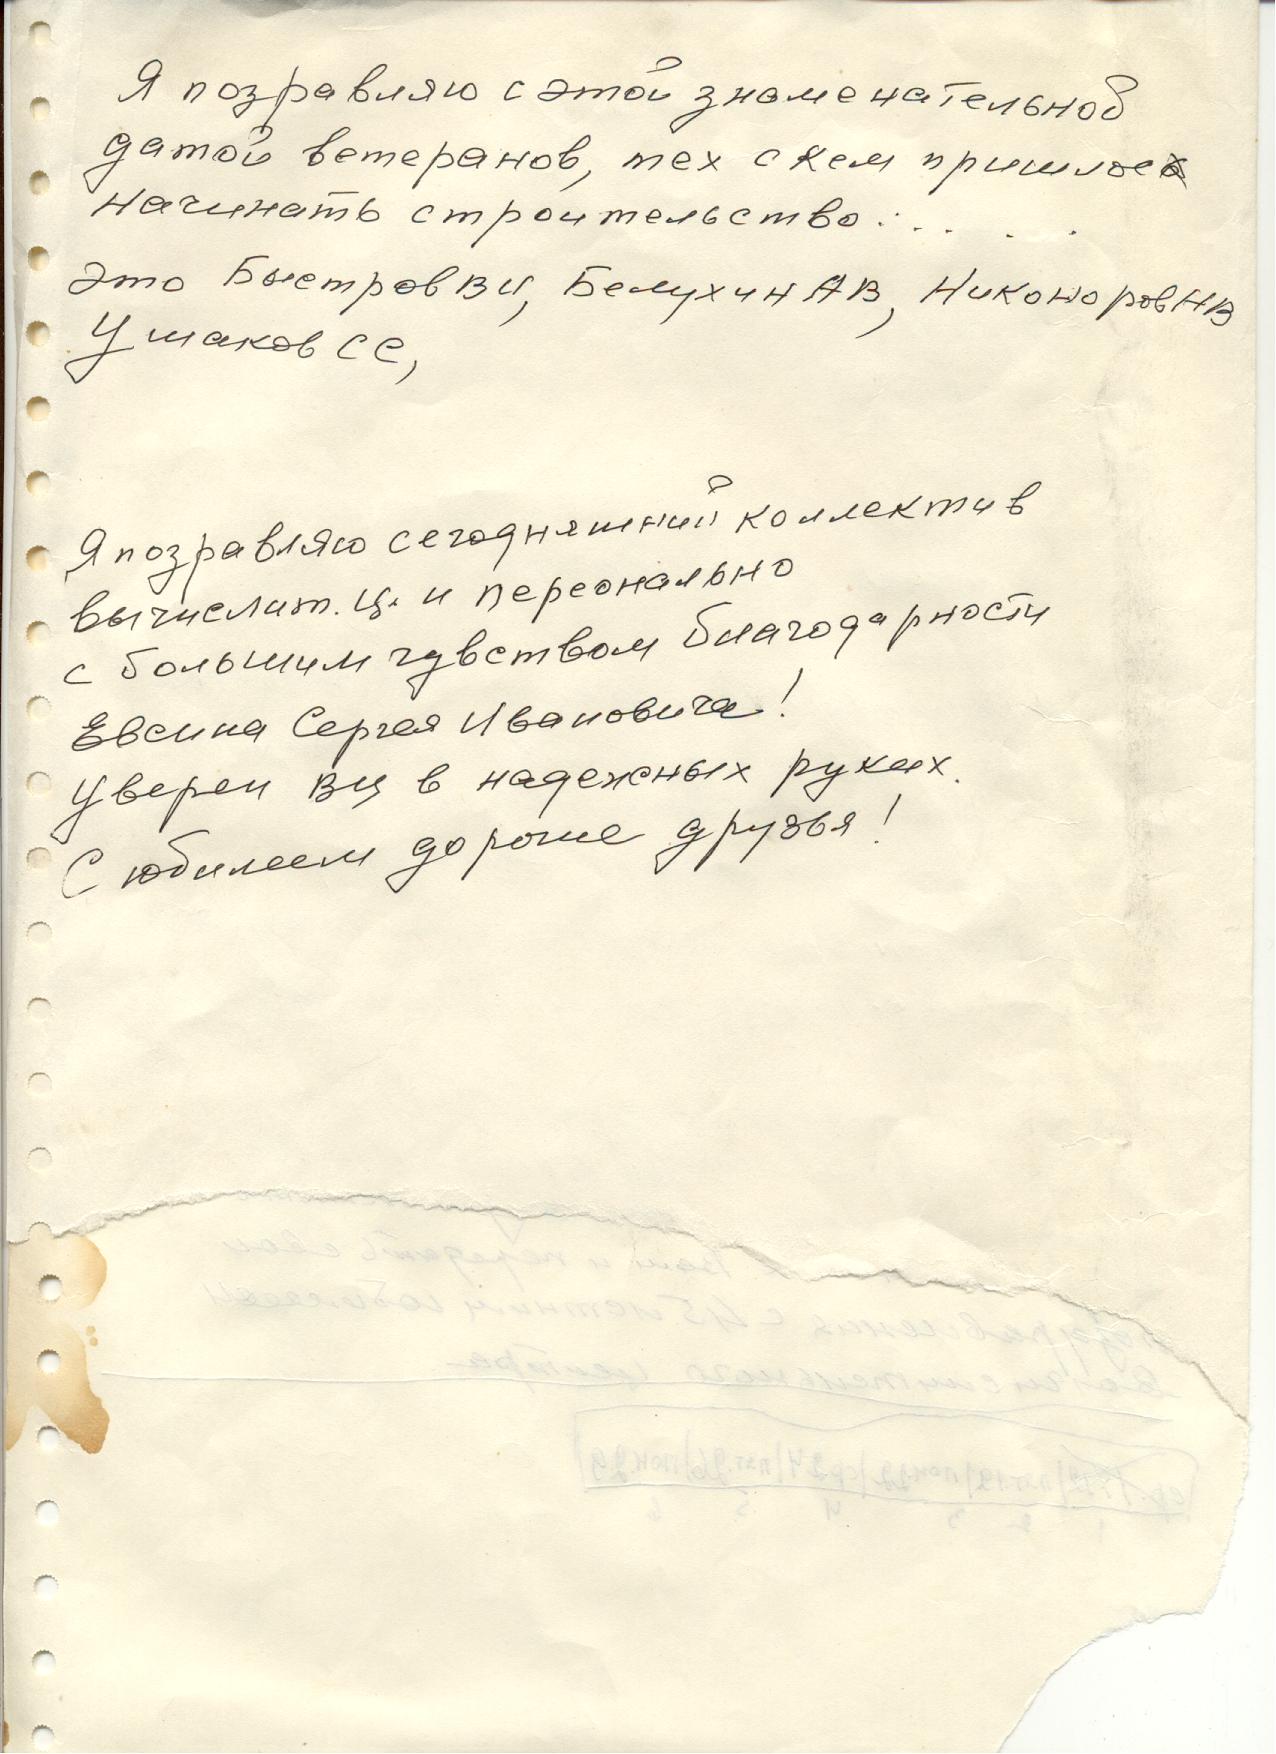 Я позравляю с этой знаменательной
датой ветеранов, тех с кем пришлось
начинать строительство . . . . .
это Быстров ВИ, Белухин АВ, Никоноров НВ
Ушаков СС,
Я позравляю сегодняшний коллектив
вычислит. ц. и персонально
с большим чувством благодарности
Евсина Сергея Ивановича!
Уверен ВЦ в надежных руках.
С юбилеем дорогие друзья!